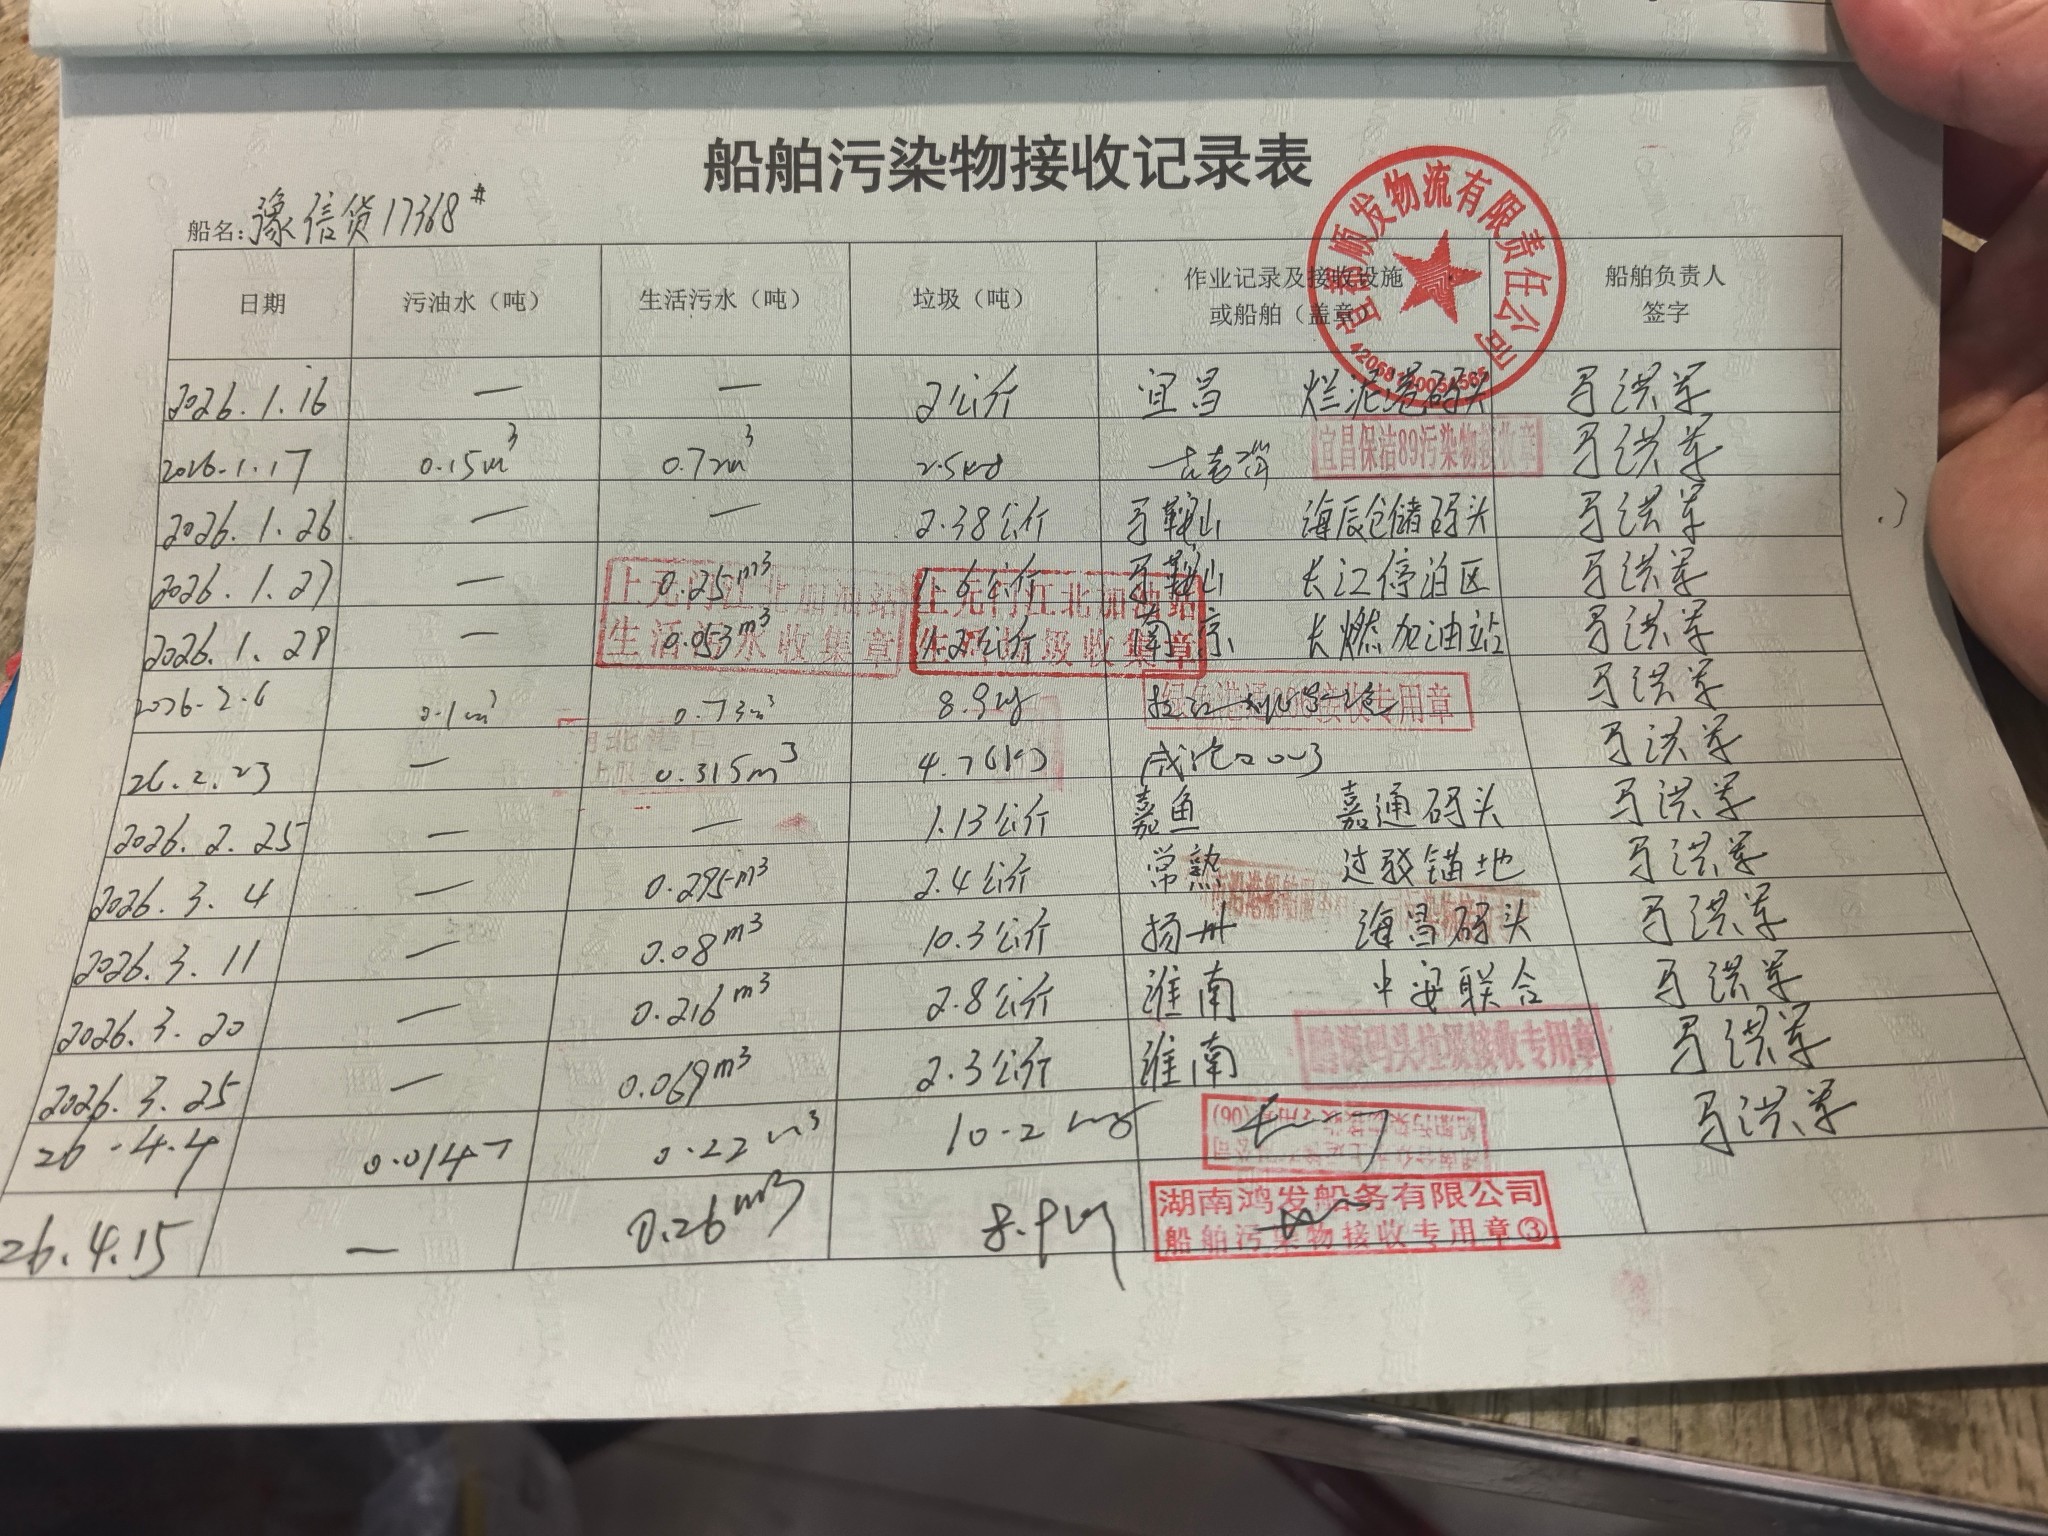 船舶污染物接收记录表
船名：豫信货17368#
日期 污油水（吨） 生活污水（吨） 垃圾（吨） 作业记录及接收设施或船舶（盖章） 船舶负责人签字
顺发物流有限责任公司
2026.1.16 — — 2公斤 宜昌 烂泥港码头 马洪军
2026.1.17 0.15m³ 0.72m³ 2.5kg 马洪军
宜昌保洁89污染物接收章
2026.1.26 — — 2.38公斤 马鞍山 海辰仓储码头 马洪军
2026.1.27 — 0.25m³ 1.6公斤 马鞍山 长江停泊区 马洪军
2026.1.29 — 0.053m³ 1.2公斤 南京 长燃加油站 马洪军
上元门江北加油站
生活污水收集章
上元门江北加油站
生活垃圾收集章
2026.2.6 0.1m³ 0.73m³ 8.9kg 马洪军
接收专用章
26.2.23 — 0.315m³ 4.7 马洪军
2026.2.25 — — 1.13公斤 嘉鱼 嘉通码头 马洪军
2026.3.4 — 0.295m³ 2.4公斤 常熟 过驳锚地 马洪军
2026.3.11 — 0.08m³ 10.3公斤 扬州 海昌码头 马洪军
2026.3.20 — 0.216m³ 2.8公斤 淮南 中安联合 马洪军
2026.3.25 — 0.069m³ 2.3公斤 淮南 马洪军
码头垃圾接收专用章
26.4.4 0.014 0.22m³ 10.2kg 马洪军
26.4.15 — 0.26m³ 8.9kg
湖南鸿发船务有限公司
船舶污染物接收专用章③